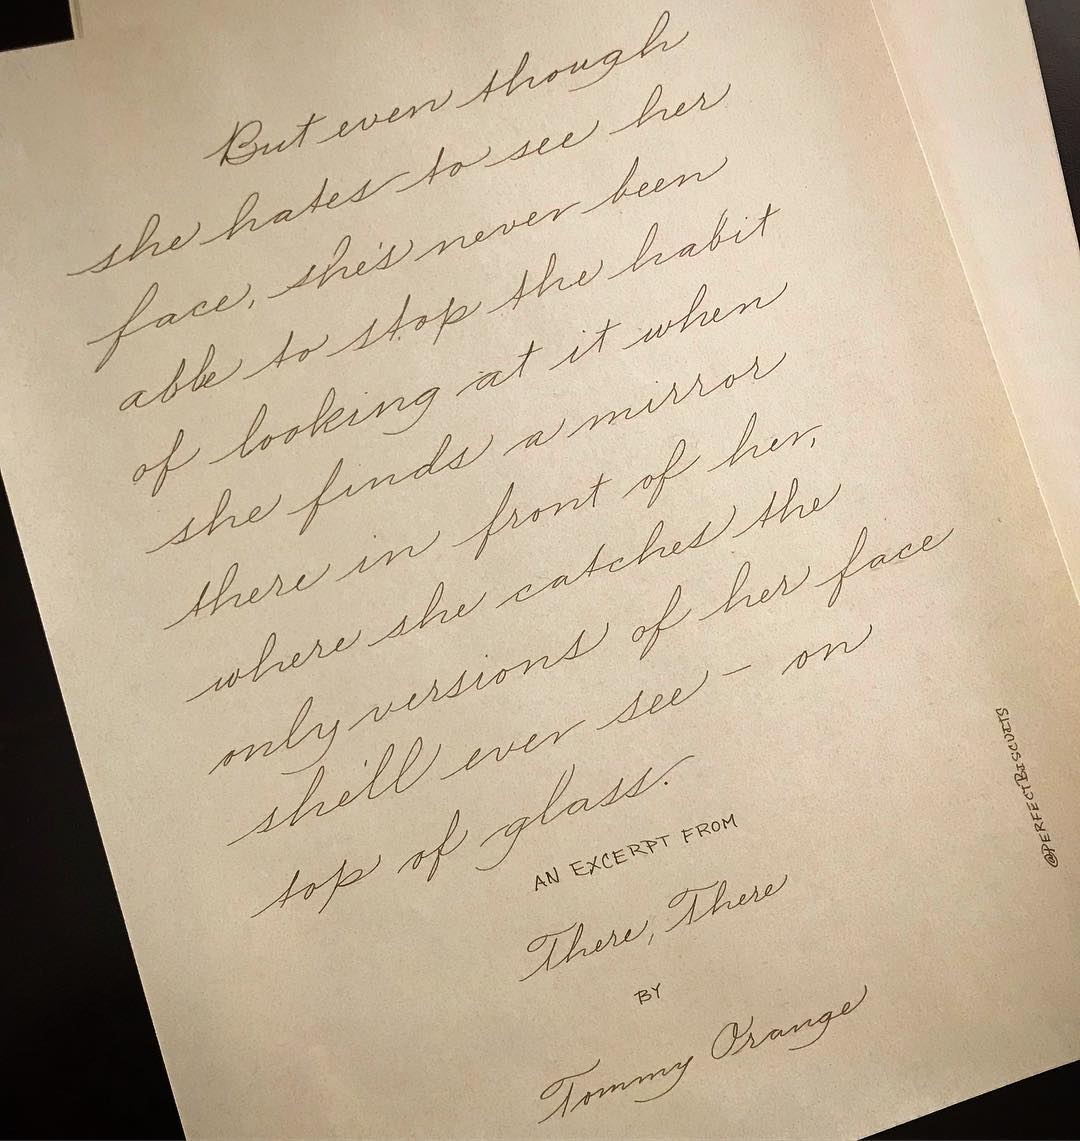 But even though
she hates to see her
face, she's never been
able to stop the habit
of looking at it when
she finds a mirror
there in front of her,
where she catches the
only versions of her face
she'll ever see — on
top of glass.
AN EXCERPT FROM
There, There
BY
Tommy Orange
@PERFECTBISCUITS